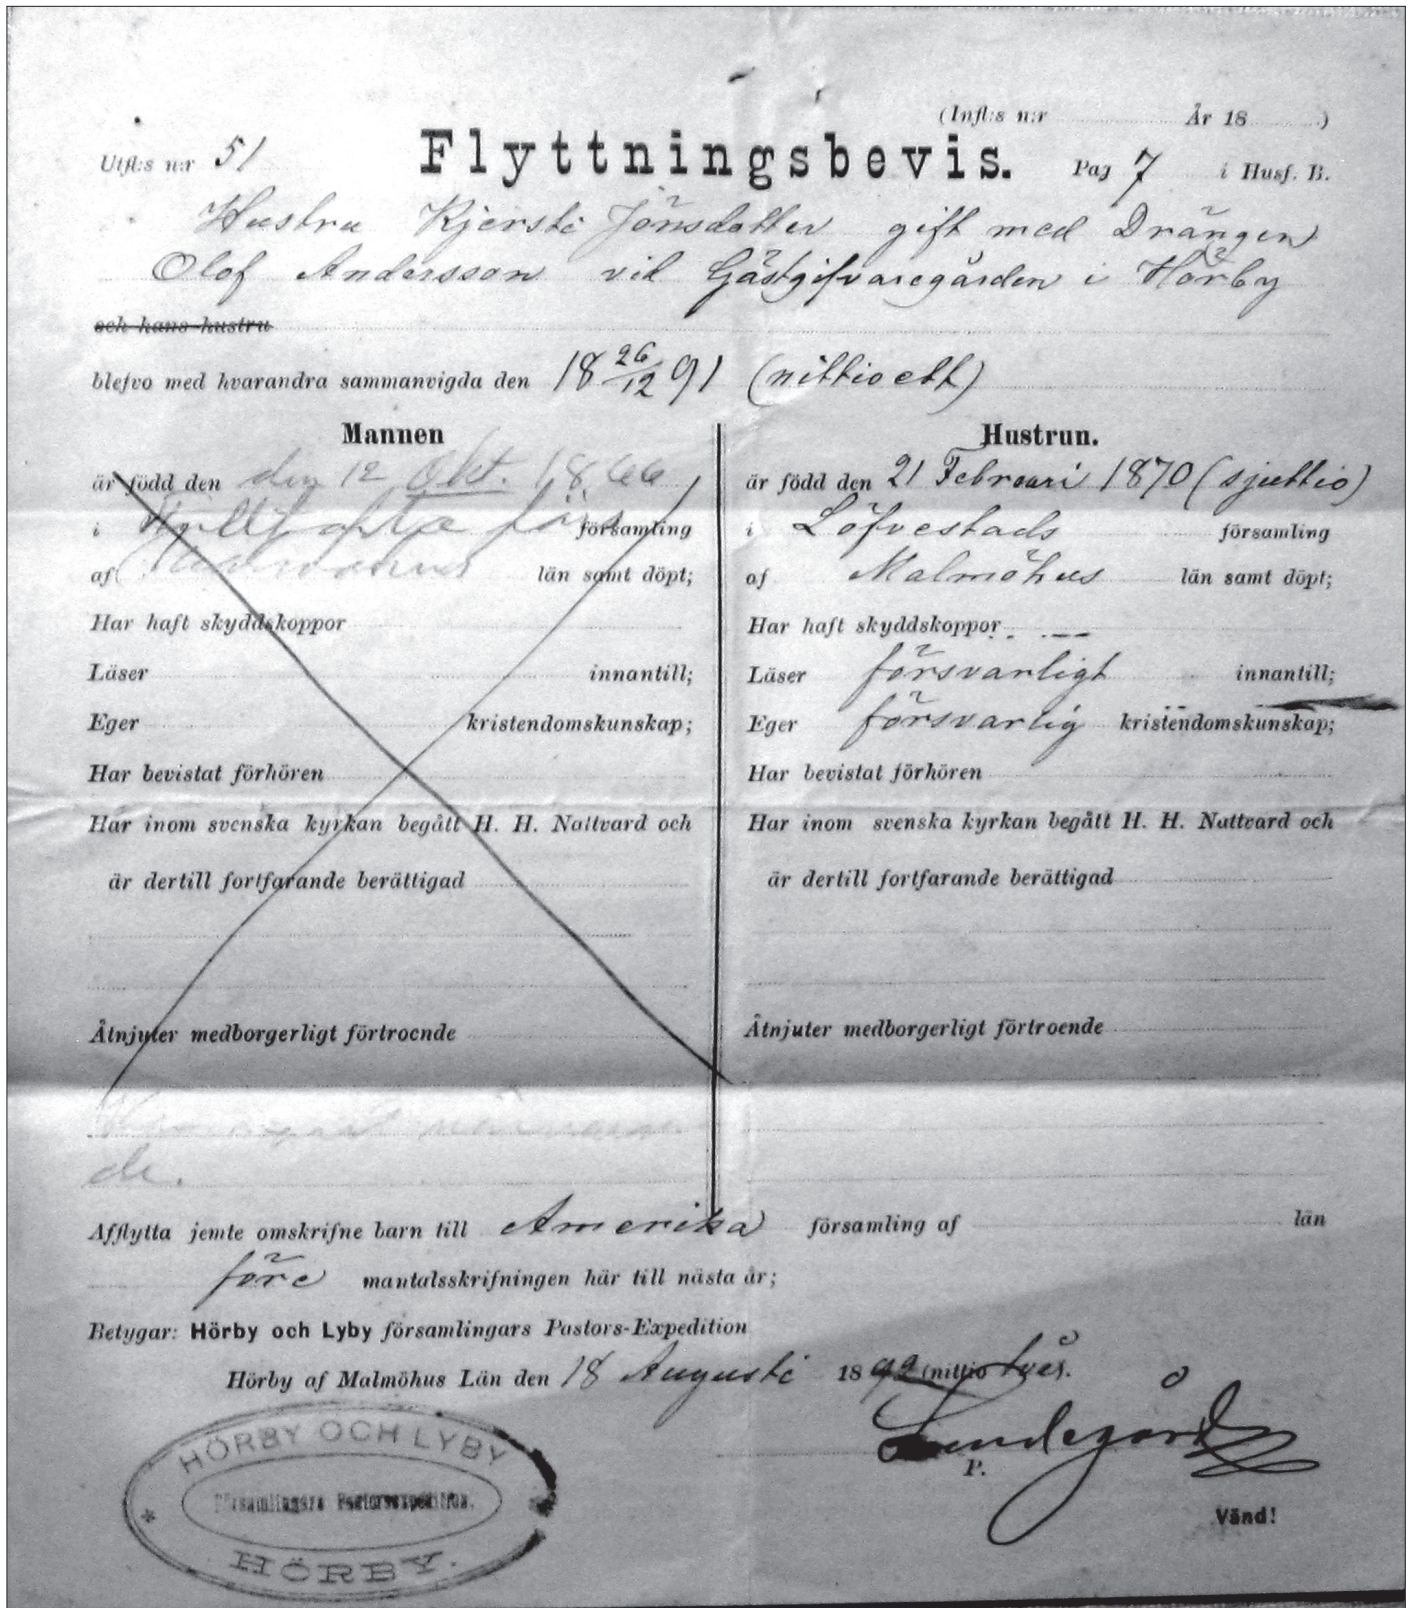 (Infl:s n:r År 18 )
Utfl:s n:r 51 Flyttningsbevis. Pag 7 i Husf. B.
Hustru Kjersti Jönsdotter gift med Drängen
Olof Andersson vid Gästgifvaregården i Hörby
och hans hustru
blefvo med hvarandra sammanvigda den 18 26/12 91 (nittioett)
Mannen
är född den den 12 Okt. 1866
i församling
af län samt döpt;
Har haft skyddskoppor
Läser innantill;
Eger kristendomskunskap;
Har bevistat förhören
Har inom svenska kyrkan begått H. H. Nattvard och
är dertill fortfarande berättigad
Åtnjuter medborgerligt förtroende
de.
Hustrun.
är född den 21 Februari 1870 (sjuttio)
i Löfvestads församling
af Malmöhus län samt döpt;
Har haft skyddskoppor —
Läser försvarligt innantill;
Eger försvarlig kristendomskunskap;
Har bevistat förhören
Har inom svenska kyrkan begått H. H. Nattvard och
är dertill fortfarande berättigad
Åtnjuter medborgerligt förtroende
Afflytta jemte omskrifne barn till Amerika församling af län
före mantalsskrifningen här till nästa år;
Betygar: Hörby och Lyby församlingars Pastors-Expedition
Hörby af Malmöhus Län den 18 Augusti 1892 (nittiotvå).
Lundegård
P.
Vänd!
HÖRBY OCH LYBY
Församlingars Pastorsexpedition.
* HÖRBY.